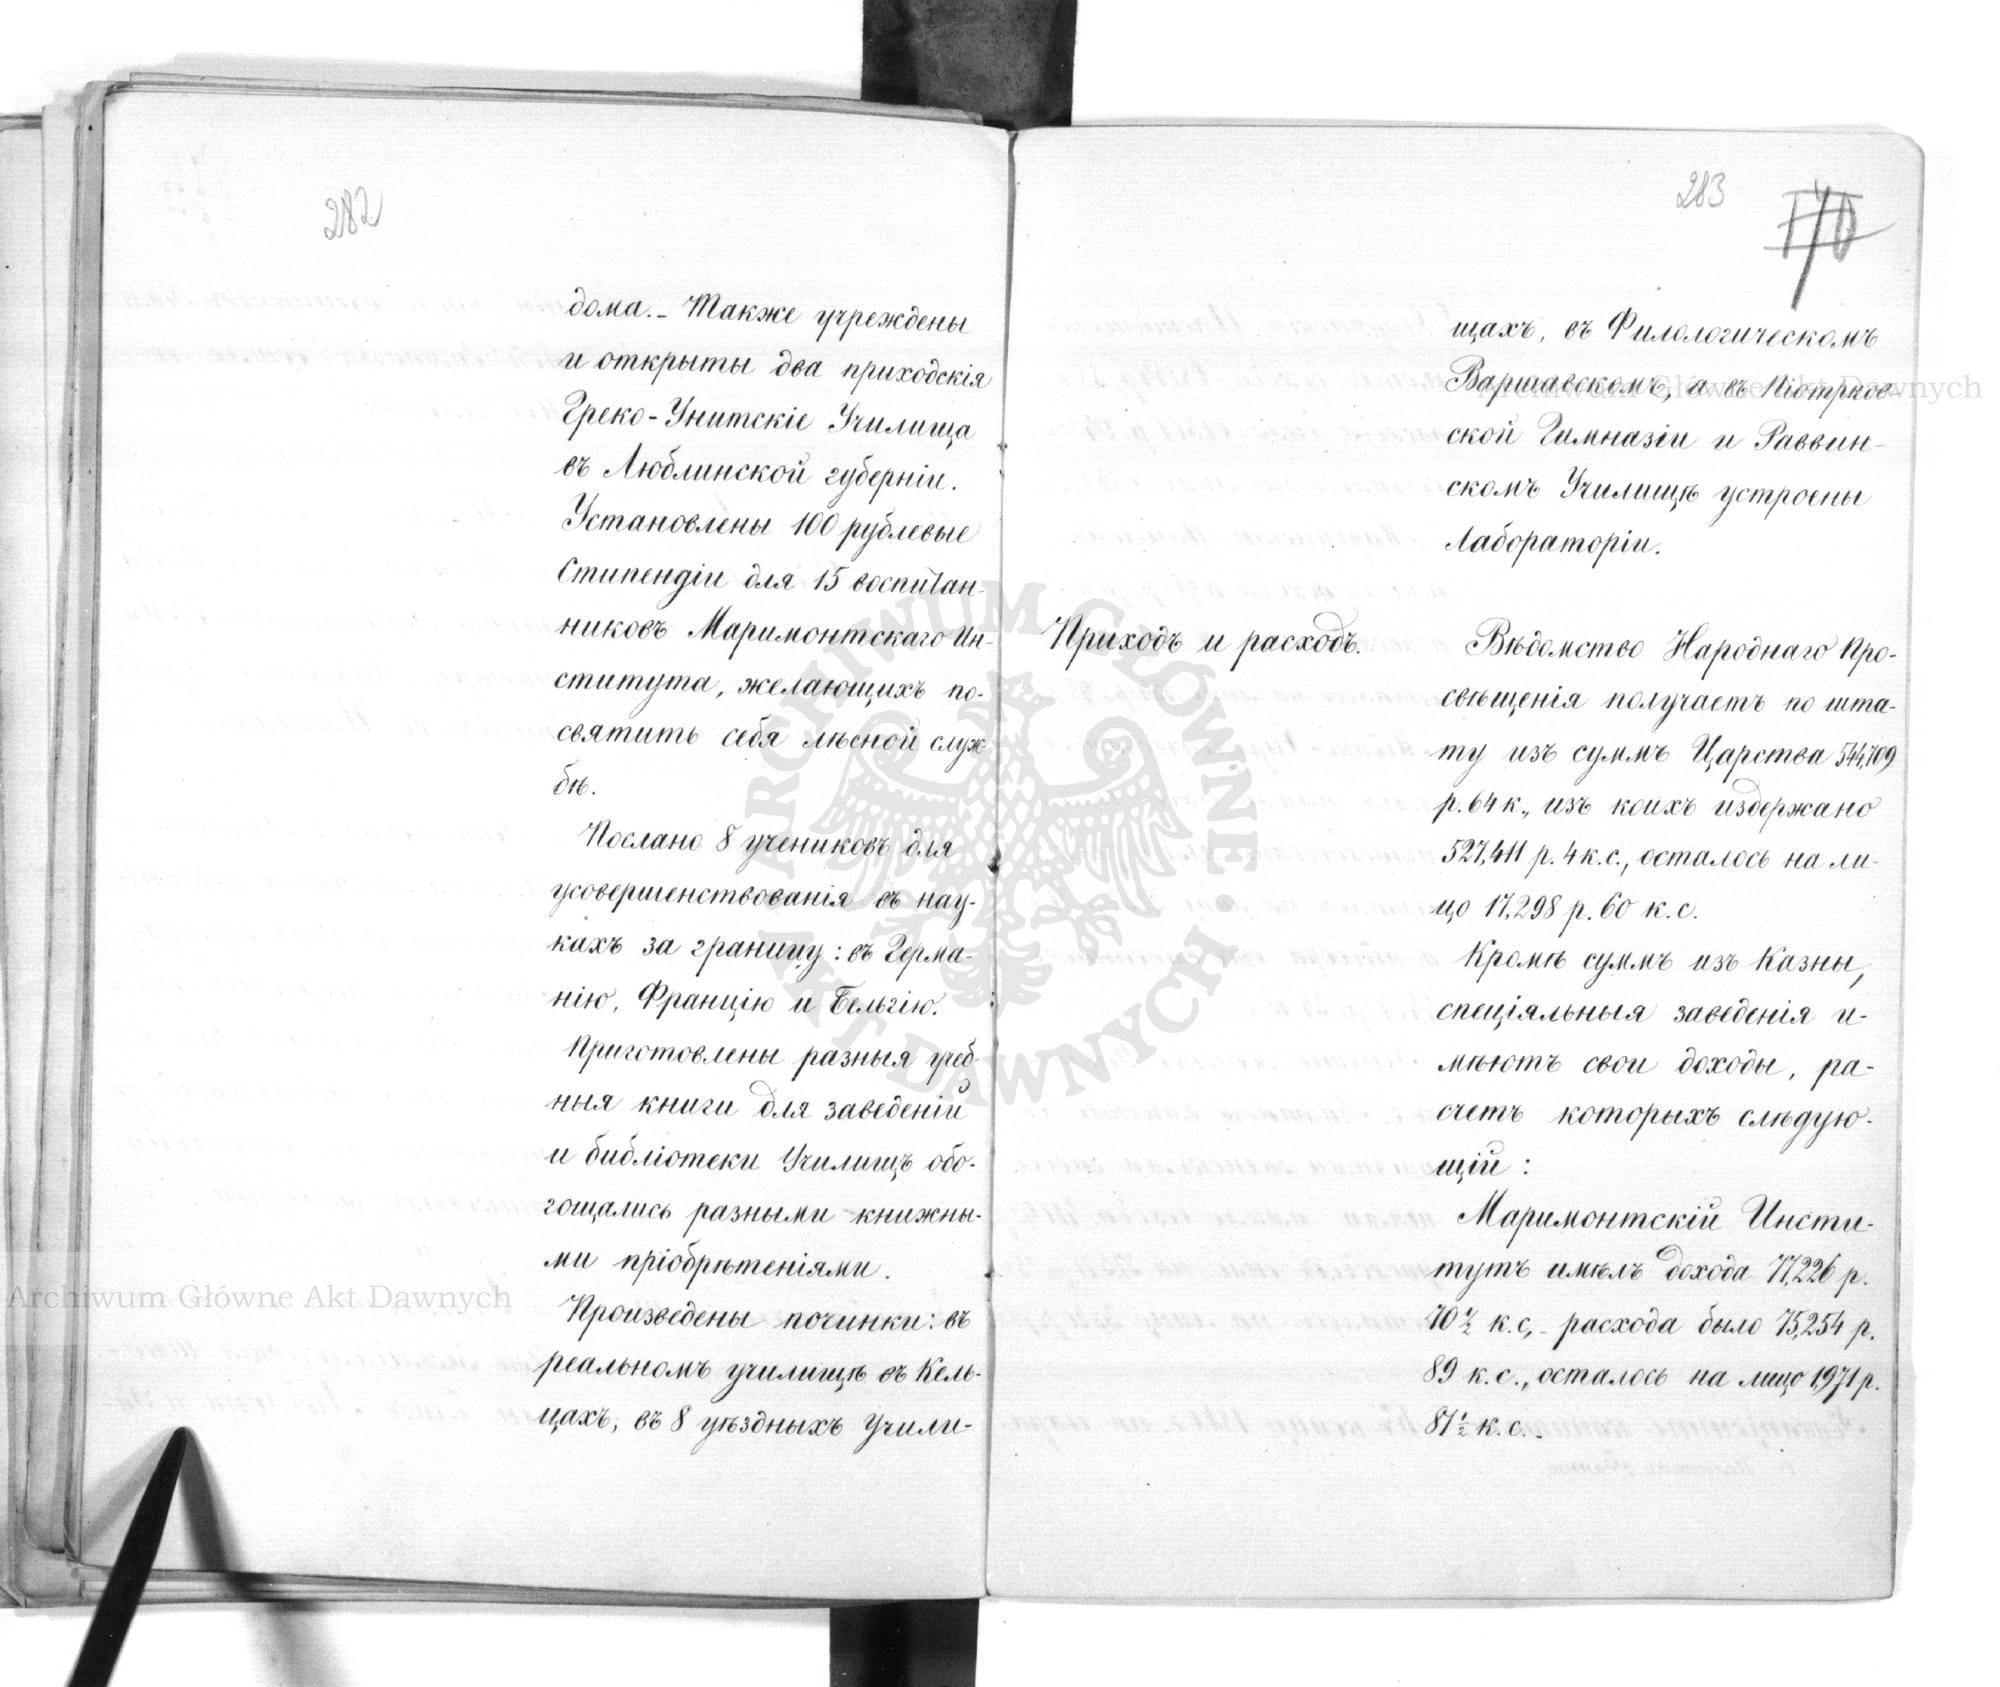 282
дома. – Также учреждены
и открыты два приходскія
Греко-Унитскіе Училища
въ Люблинской губерніи.
Установлены 100 рублевые
Стипендіи для 15 воспитан-
никовъ Маримонтскаго Ин-
ститута, желающихъ по-
святить себя лѣсной служ-
бѣ.
Послано 8 учениковъ для
усовершенствованія въ нау-
кахъ за границу: въ Герма-
нію, Францію и Бельгію.
Приготовлены разныя учеб-
ныя книги для заведеній
и библіотеки Училищъ обо-
гощались разными книжны-
ми пріобрѣтеніями.
Произведены починки: въ
реальномъ училищѣ въ Кель-
цахъ, въ 8 уѣздныхъ Учили-
283
170
щахъ, въ Филологическомъ
Варшавскомъ, а въ Піотрков-
ской Гимназіи и Раввин-
скомъ Училищѣ устроены
Лабораторіи.
Приходъ и расходъ.
Вѣдомство Народнаго Про-
свѣщенія получаетъ по шта-
ту изъ суммъ Царства 544,709
р. 64 к., изъ коихъ издержано
527,411 р. 4 к. с., осталось на ли-
цо 17,298 р. 60 к. с.
Кромѣ суммъ изъ Казны,
спеціяльныя заведенія и-
мѣютъ свои доходы, ра-
счетъ которыхъ слѣдую-
щій:
Маримонтскій Инсти-
тутъ имѣлъ дохода 77,226 р.
70 ½ к. с, – расхода было 75,254 р.
89 к. с., осталось на лицо 1,971 р.
81 ½ к. с. –
Archiwum Główne Akt Dawnych
Archiwum Główne Akt Dawnych
ARCHIWUM GŁÓWNE AKT DAWNYCH